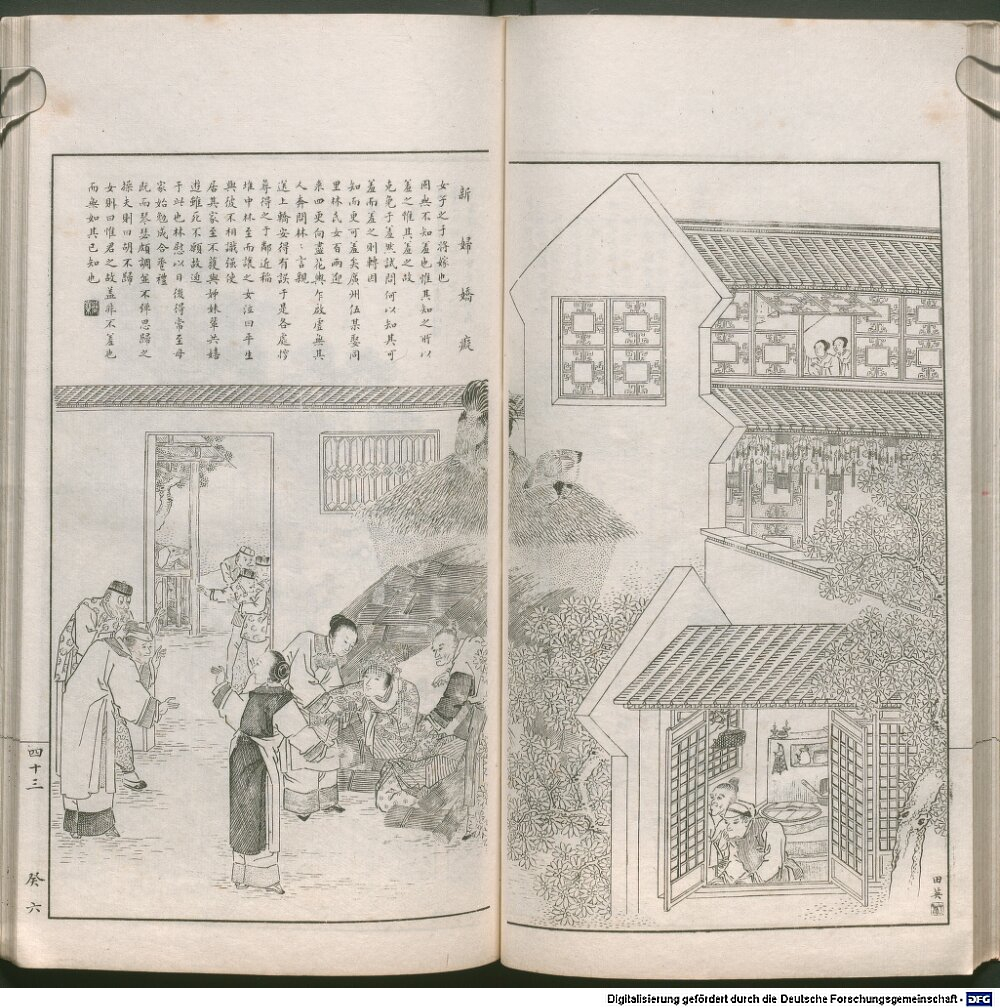 新婦嬌癡
女子之于將嫁也
固無不知羞也惟其知之所以
羞之惟其羞之故
克免于羞然試問何以知其可
羞而羞之則轉因
知而更可羞矣廣州伍某娶同
里林氏女百兩迎
來四更向盡花輿乍啟虛無其
人奔問林林言親
送上轎安得有誤于是各處
尋得之于鄰近稻
堆中林至而讓之女泣曰平生
與彼不相識强使
居其家至不獲與姊妹輩共嬉
遊雖死不願故逋
于此也林慰以日後得常至母
家始勉成合巹禮
既而琴瑟頗調並不憚思歸之
操夫則曰胡不歸
女則曰惟君之故蓋非不羞也
而無如其已知也
四十三
癸六
田英
Digitalisierung gefördert durch die Deutsche Forschungsgemeinschaft - DFG